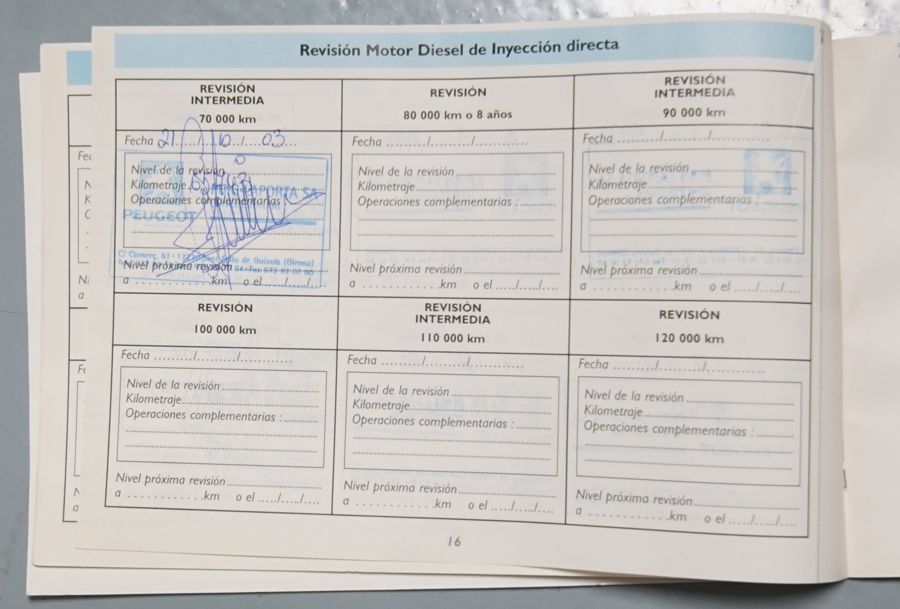 Revisión Motor Diesel de Inyección directa
REVISIÓN
INTERMEDIA
70 000 km
Fecha 21/10/03
Nivel de la revisión
Kilometraje
Operaciones complementarias
PEUGEOT
Nivel próxima revisión
a ............km o el ...../...../....
REVISIÓN
80 000 km o 8 años
Fecha ........./........./............
Nivel de la revisión
Kilometraje
Operaciones complementarias :
Nivel próxima revisión
a ............km o el ...../...../....
REVISIÓN
INTERMEDIA
90 000 km
Fecha ........./........./............
Nivel de la revisión
Kilometraje
Operaciones complementarias :
Nivel próxima revisión
a ............km o el ...../...../....
REVISIÓN
100 000 km
Fecha ........./........./............
Nivel de la revisión
Kilometraje
Operaciones complementarias :
Nivel próxima revisión
a ............km o el ...../...../....
REVISIÓN
INTERMEDIA
110 000 km
Fecha ........./........./............
Nivel de la revisión
Kilometraje
Operaciones complementarias :
Nivel próxima revisión
a ............km o el ...../...../....
REVISIÓN
120 000 km
Fecha ........./........./............
Nivel de la revisión
Kilometraje
Operaciones complementarias :
Nivel próxima revisión
a ............km o el ...../...../....
16